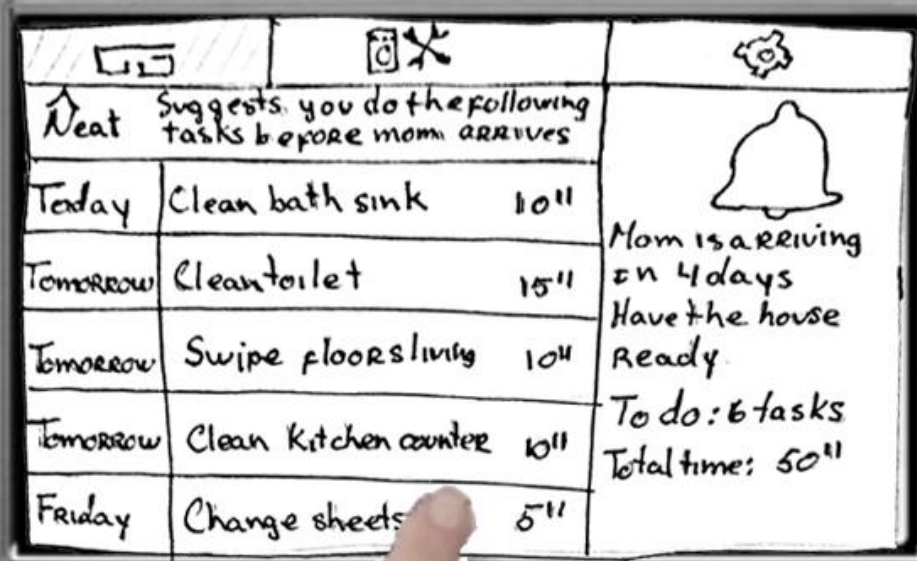 Neat Suggests you do the following
tasks before mom arrives
Today Clean bath sink 10"
Tomorrow Clean toilet 15"
Tomorrow Swipe floors living 10"
Tomorrow Clean Kitchen counter 10"
Friday Change sheets 5"
Mom is arriving
in 4 days
Have the house
Ready.
To do: 6 tasks
Total time: 50"